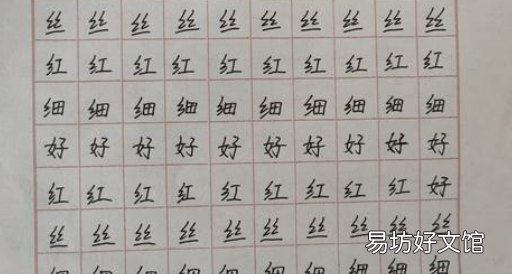 丝丝丝丝丝丝丝丝丝丝
红红红红红红红红红红
细细细细细细细细细细
好好好好好好好好好好
红红红红红红红红红好
丝丝丝丝丝丝丝丝丝丝
细细细细细细细细细细
易坊好文馆